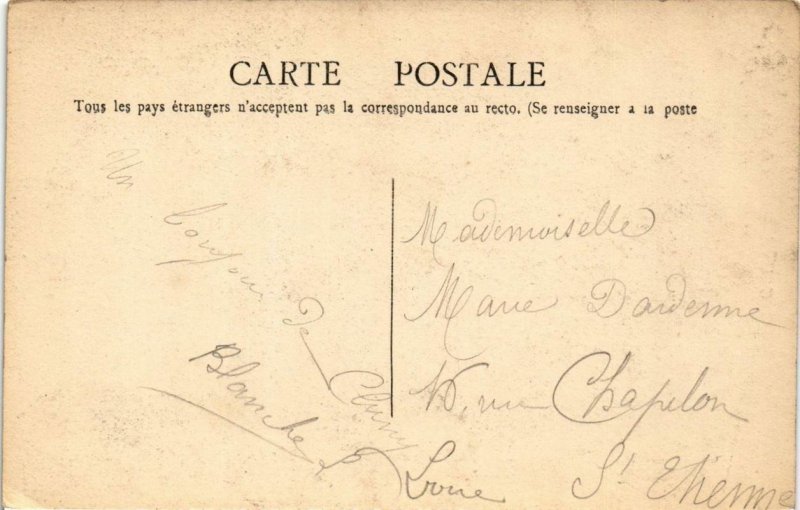 CARTE POSTALE
Tous les pays étrangers n'acceptent pas la correspondance au recto. (Se renseigner a la poste
Un
bonjour
De
Cluny
Blanche
Mademoiselle
Marie Dardenne
16, rue Chapelon
St Etienne
Loire